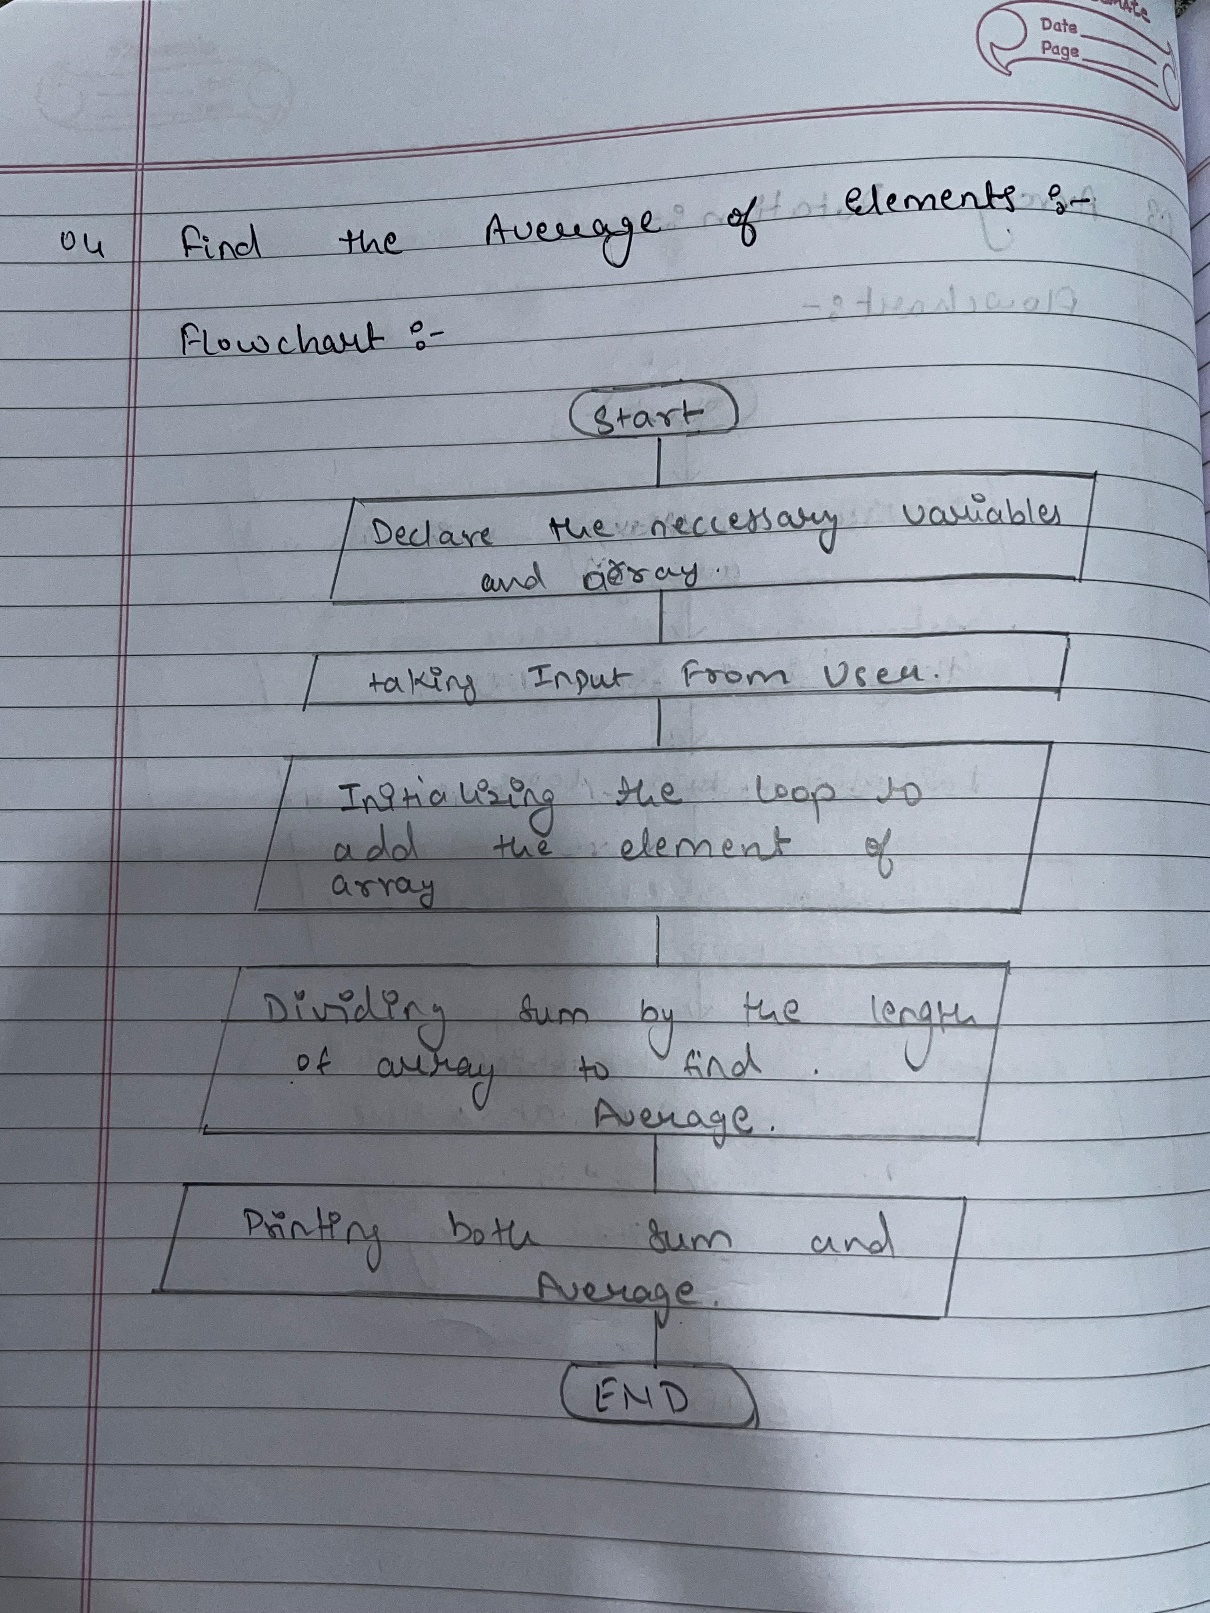 Date
Page
04 Find the Average of elements :-
Flowchart :-
Start
Declare the neccessary variables
and array.
taking Input From User.
Initializing the loop to
add the element of
array
Dividing sum by the length
of array to find .
Average.
Printing both sum and
Average.
END